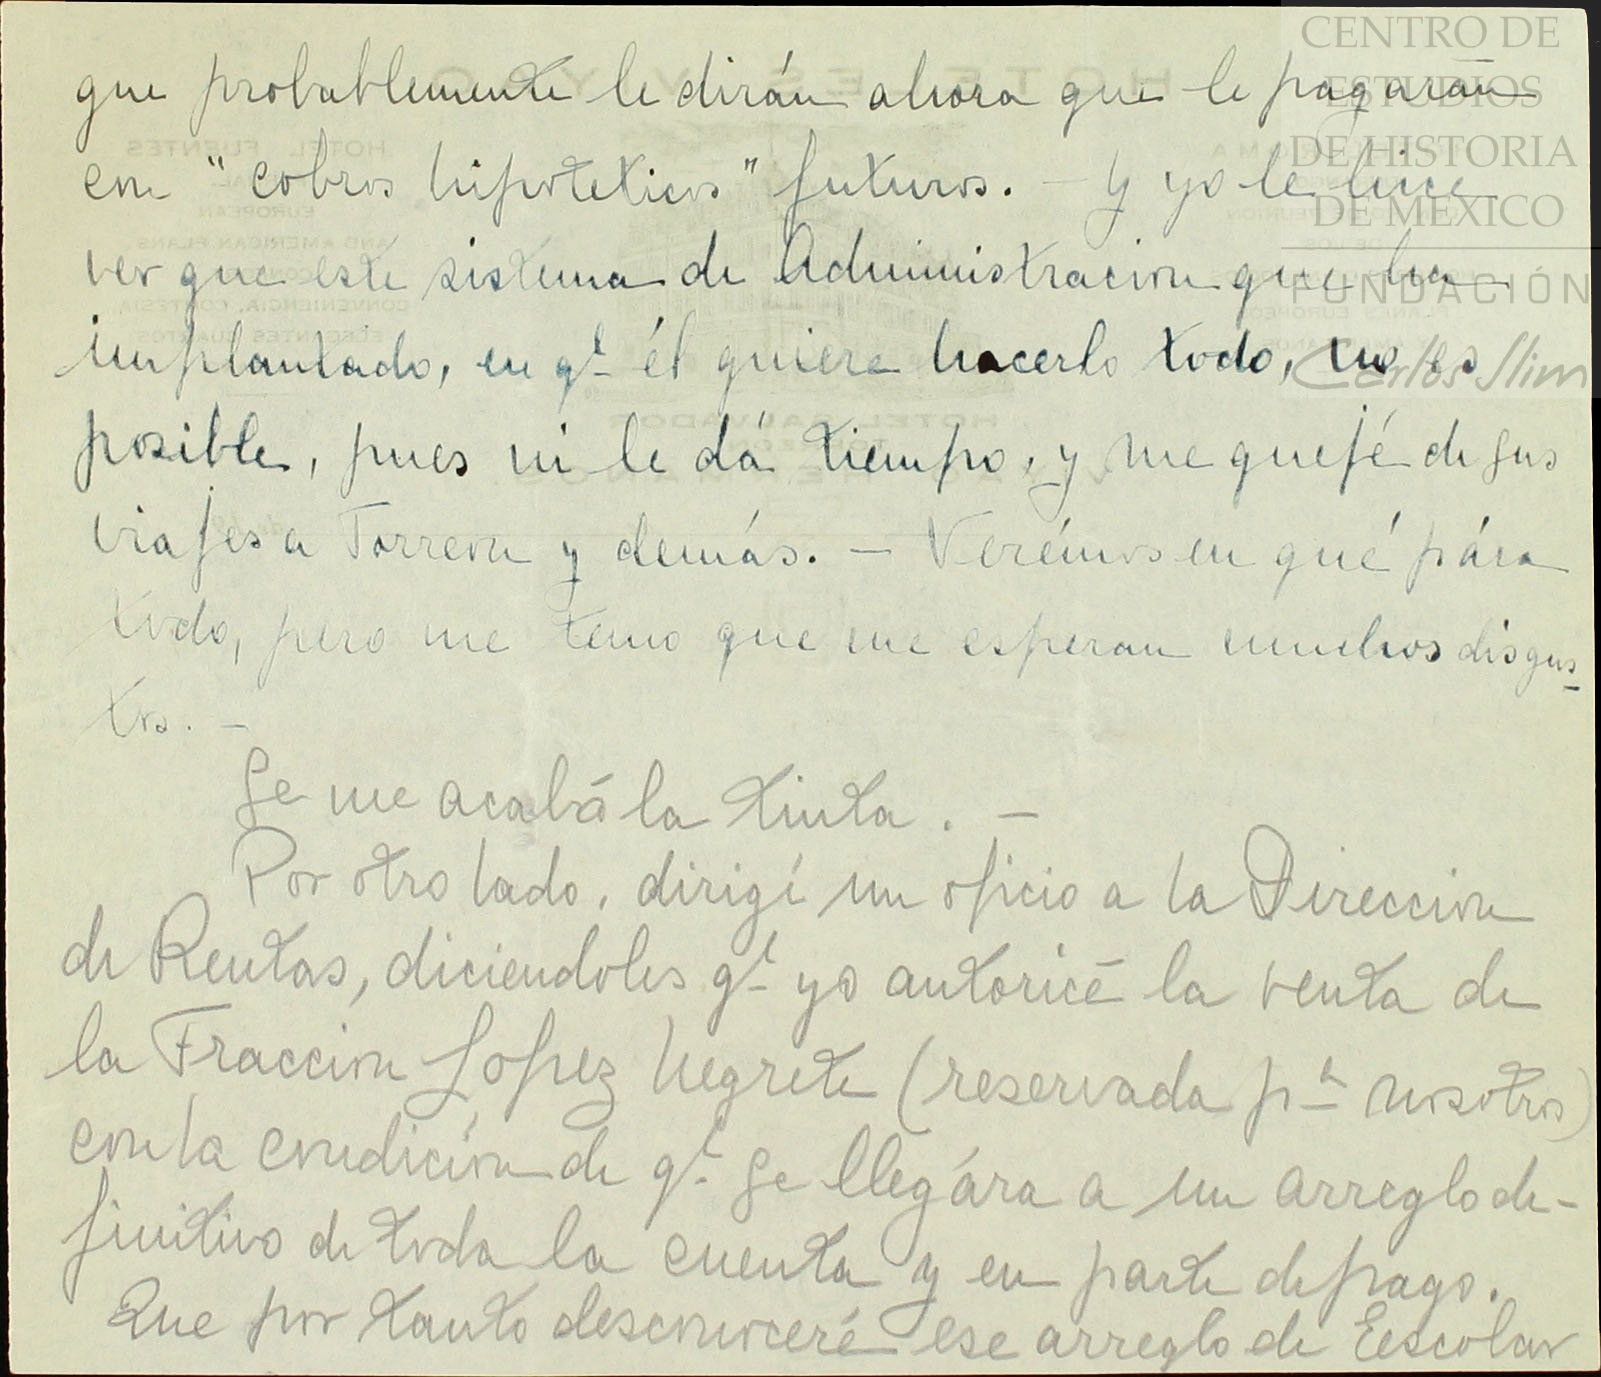 CENTRO DE
ESTUDIOS
DE HISTORIA
DE MÉXICO
FUNDACIÓN
Carlos Slim
que probablemente le dirán ahora que le pagarán
con "cobros hipoteticos" futuros. - Y yo le hice
ver que este sistema de Administracion que ha
implantado, en qe él quiere hacerlo todo, no es
posible, pues ni le dá tiempo, y me quejé de sus
viajes a Torreon y demás. - Verémos en qué pára
todo, pero me temo que me esperan muchos disgus-
tos. -
Se me acabó la tinta. -
Por otro lado, dirigí un oficio a la Direccion
de Rentas, diciendoles qe yo autoricé la venta de
la Fraccion Lopez Negrete (reservada pa nosotros)
con la condición de qe se llegára a un arreglo de-
finitivo de toda la cuenta y en parte de pago.
Que por tanto desconoceré ese arreglo de Eescolar